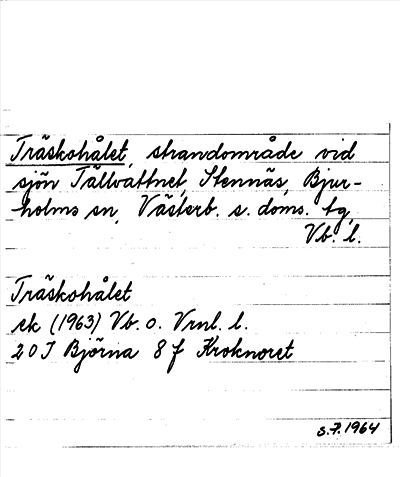 Träskohålet, strandområde vid
sjön Tällvattnet, Stennäs, Bjur-
holms sn, Västerb. s. doms. tg,
Vb. l.
Träskohålet
ek (1963) Vb. o. Vrnl. l.
20 I Björna 8 f Kroknoret
S.F. 1964